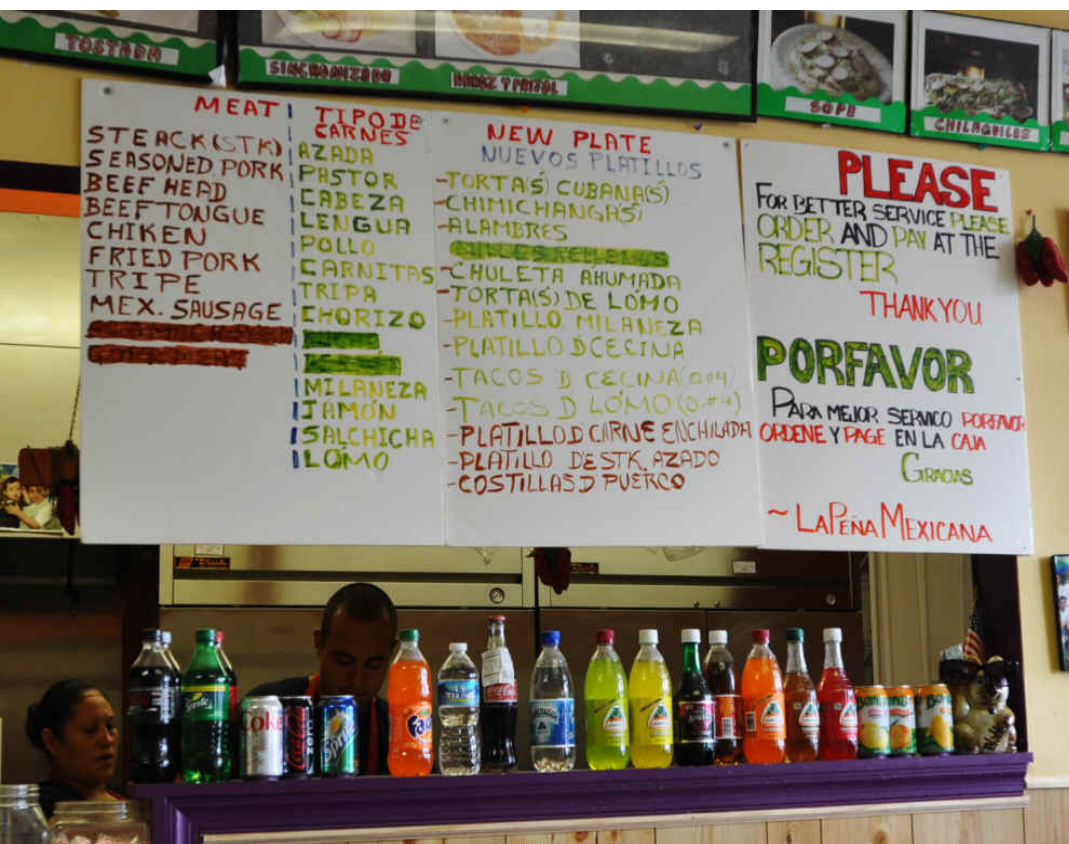 TOSTADA
SINCRONIZADO
SOPE
CHILAQUILES
MEAT
STEACK(STK)
SEASONED PORK
BEEF HEAD
BEEF TONGUE
CHIKEN
FRIED PORK
TRIPE
MEX. SAUSAGE
TIPO DE
CARNES
AZADA
PASTOR
CABEZA
LENGUA
POLLO
CARNITAS
TRIPA
CHORIZO
MILANEZA
JAMÓN
SALCHICHA
LOMO
NEW PLATE
NUEVOS PLATILLOS
-TORTA(S) CUBANA(S)
-CHIMICHANGA(S)
-ALAMBRES
-CHULETA AHUMADA
-TORTA(S) DE LOMO
-PLATILLO MILANEZA
-PLATILLO D CECINA
-TACOS D CECINA (O#4)
-TACOS D LOMO (O#4)
-PLATILLO D CARNE ENCHILADA
-PLATILLO DE STK. AZADO
-COSTILLAS D PUERCO
PLEASE
FOR BETTER SERVICE PLEASE
ORDER AND PAY AT THE
REGISTER
THANK YOU
PORFAVOR
PARA MEJOR SERVICO PORFAVOR
ORDENE Y PAGE EN LA CAJA
GRACIAS
~ LA PEÑA MEXICANA
Sprite
Coke
Coca-Cola
zero
Sprite
Fanta
Coca-Cola